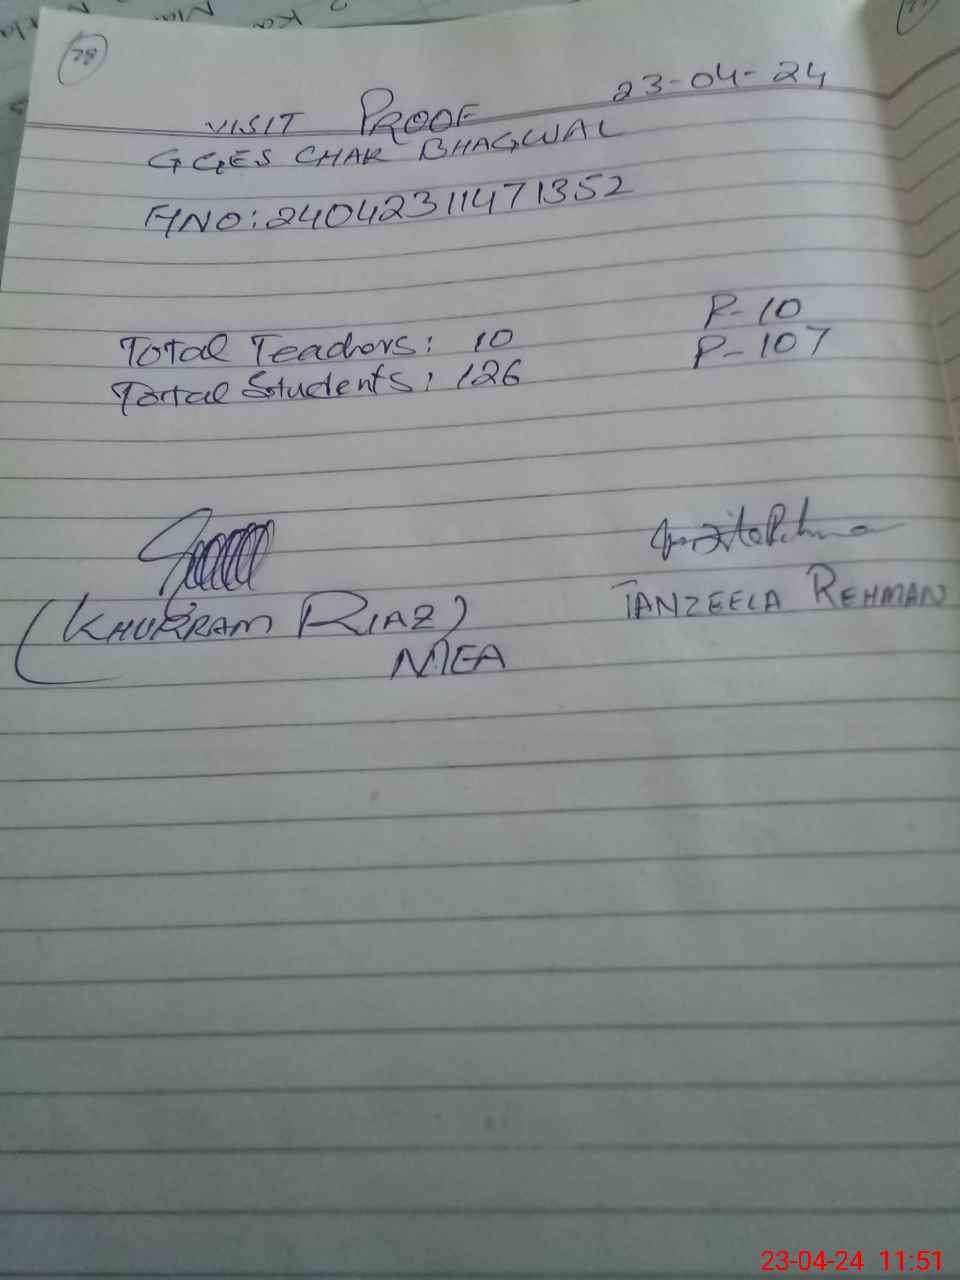 78
VISIT PROOF 23-04-24
GGES CHAK BHAGWAL
A/NO: 24042311471352
Total Teachors: 10 P-10
Tortal Students: 126 P-107
(KHURRAM RIAZ) TANZEELA REHMAN
MEA
23-04-24 11:51